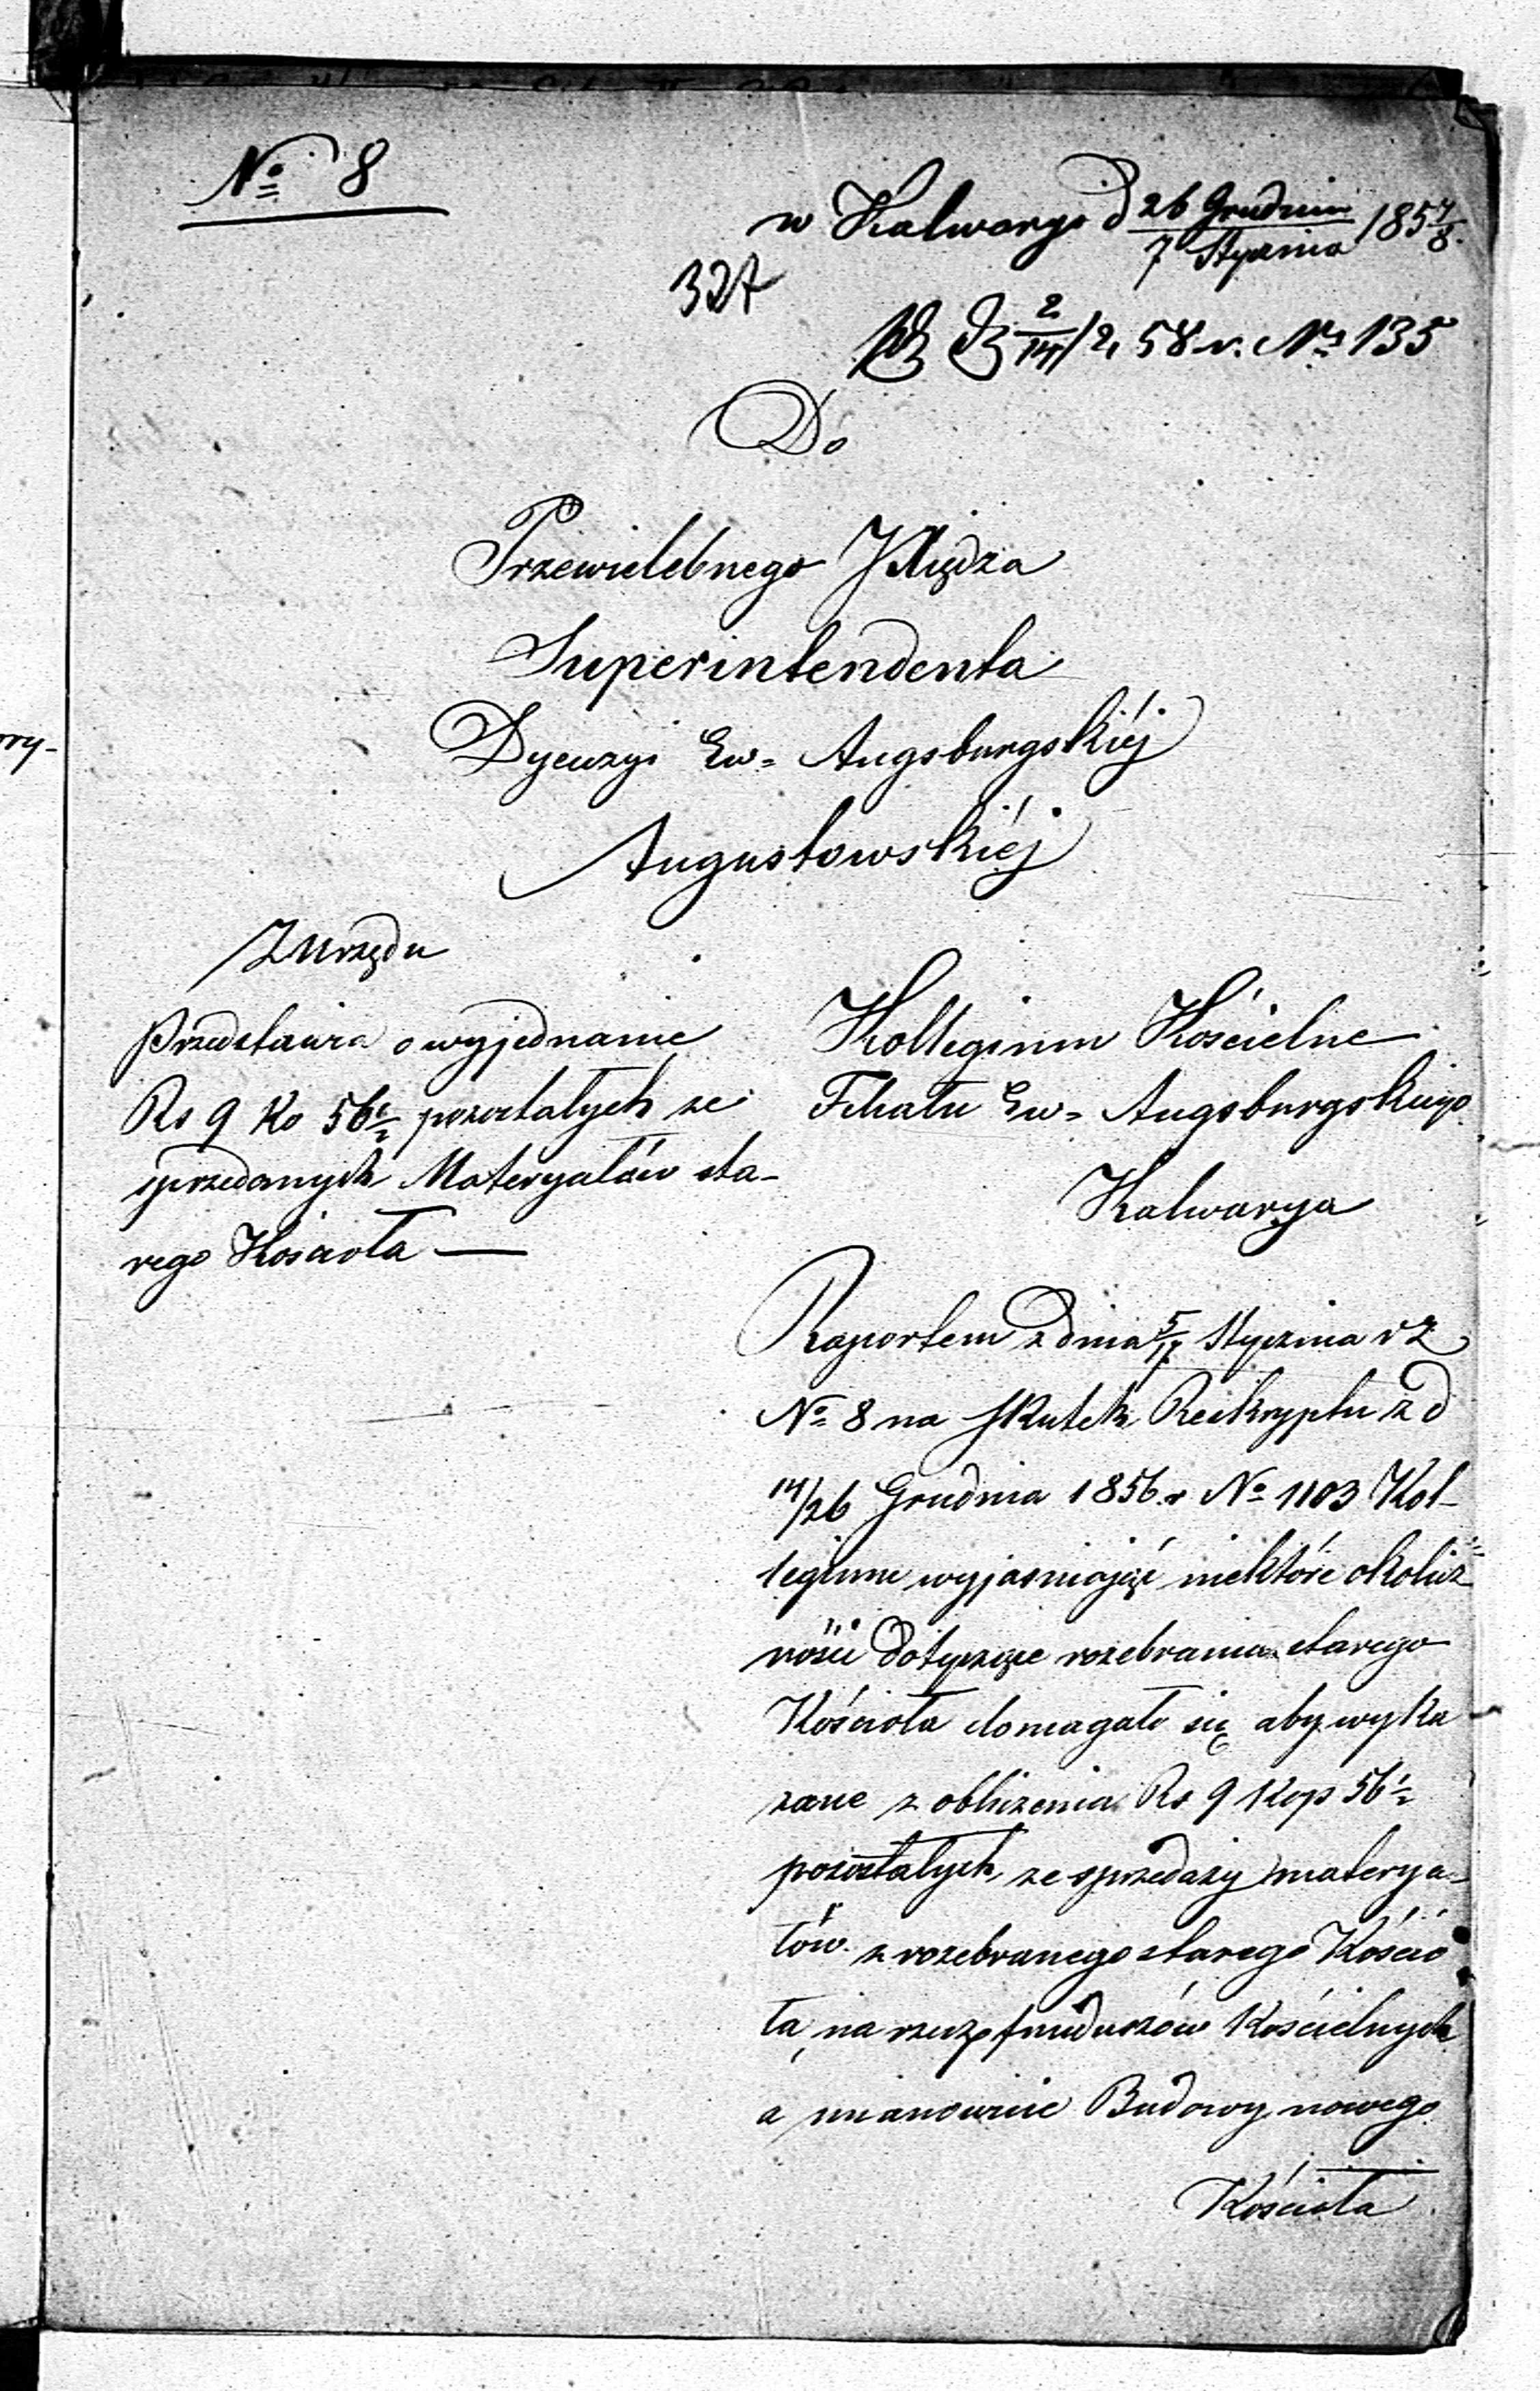 № 8
w Kalwaryi d 26 Grudnia / 7 Stycznia 185 7/8.
327
2/14 /2 58 r. № 135
Do
Przewielebnego JXiędza
Superintendenta
Dyecezyi Ew= Augsburgskiéj
Augustowskiéj
Z Urzędu
Przedstawia o wyjednanie
Rs 9 Ko 56½ pozostałych ze
sprzedanych Materyałów sta-
rego Kościoła —
Kollegium Kościelne
Filiału Ew= Augsburgskiego
Kalwarya
Raportem z dnia 5/17 Stycznia r z
№ 8 na skutek Reskryptu z d
14/26 Grudnia 1856 r № 1103 Kol-
legium wyjasniając niektóre okolicz
ności dotyczące rozebrania starego
Kościoła domagało się aby wyka
zane z obliczenia Rs 9 Kop 56½
pozostałych ze sprzedaży materya-
łów z rozebranego starego Kościo
ła, na rzecz funduszów Kościelnych
a mianowicie Budowy nowego
Kościoła